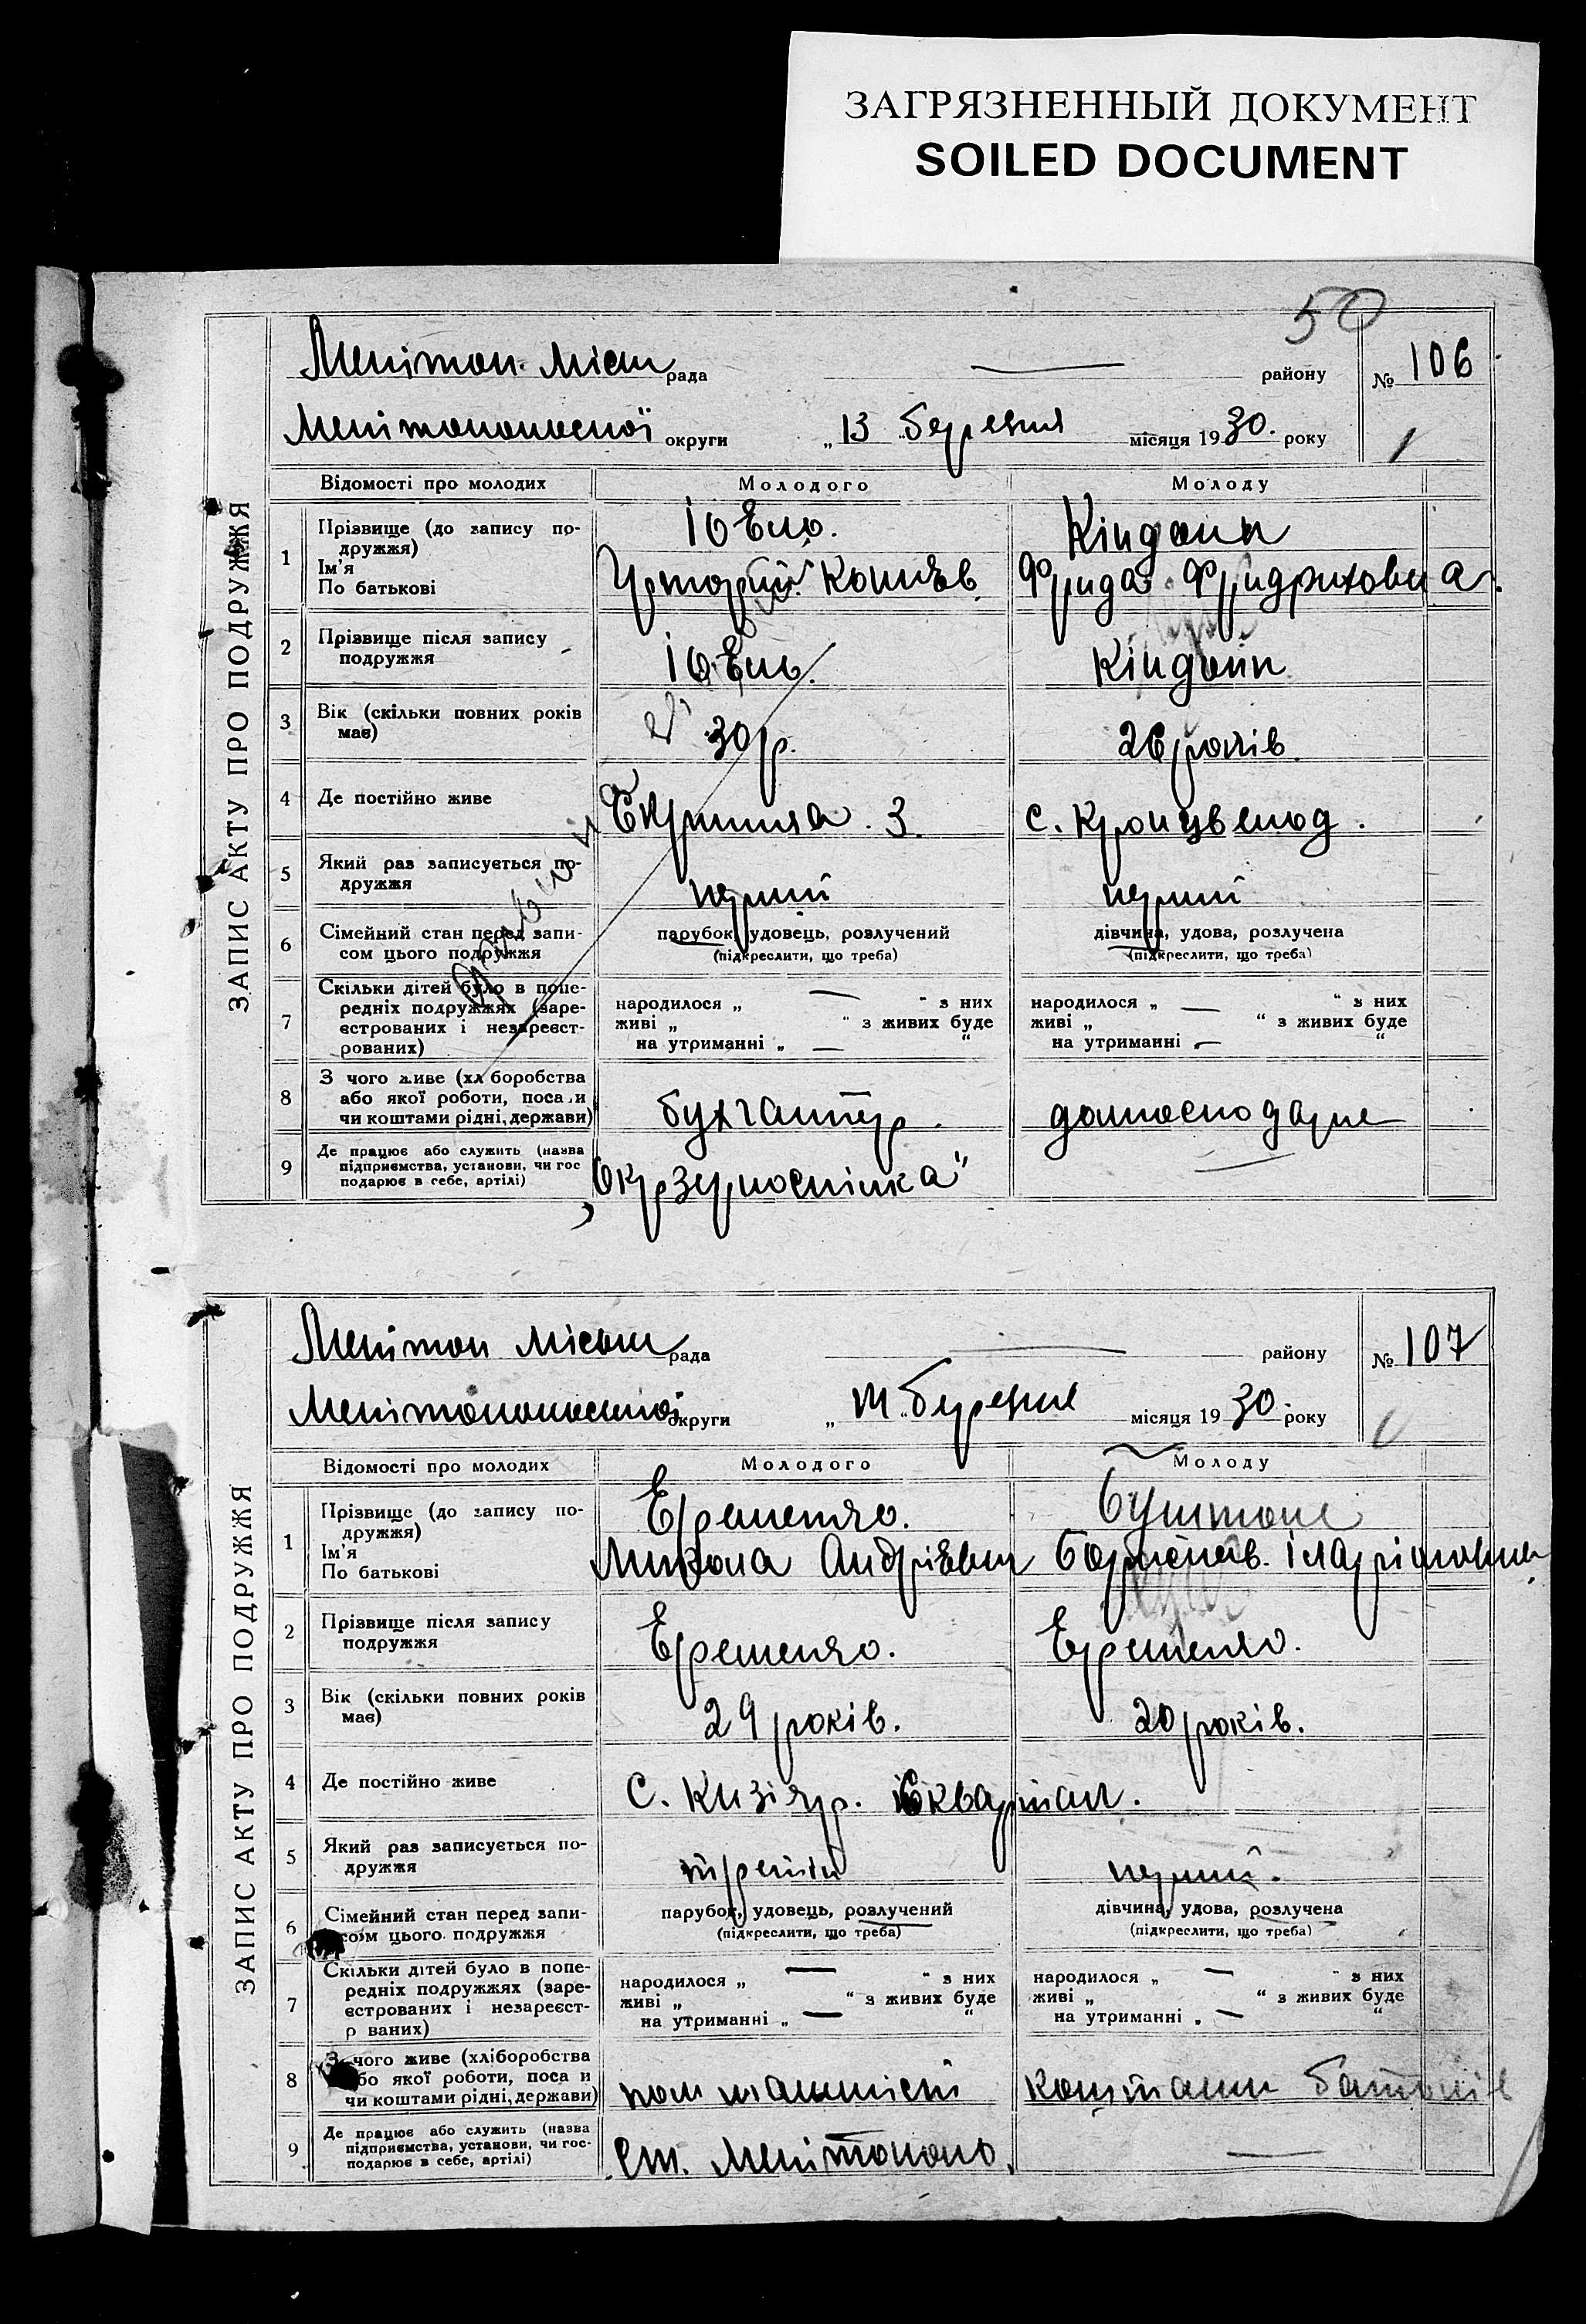 ЗАГРЯЗНЕННЫЙ ДОКУМЕНТ
SOILED DOCUMENT
50
ЗАПИС АКТУ ПРО ПОДРУЖЖЯ
Мелітоп. міськ рада району № 106
Мелітопольської округи „13" березня місяця 1930. року
Відомості про молодих Молодого Молоду
1 Прізвище (до запису по-
дружжя)
Ім'я
По батькові
Фрида Фридриховна
2 Прізвище після запису
подружжя
3 Вік (скільки повних років
має)
30 р. 26 років.
4 Де постійно живе
с. Кронсвельд.
5 Який раз записується по-
дружжя
перший перший
6 Сімейний стан перед запи-
сом цього подружжя
парубок, удовець, розлучений дівчина, удова, розлучена
(підкреслити, що треба) (підкреслити, що треба)
7 Скільки дітей було в попе-
редніх подружжях (заре-
єстрованих і незареєст-
рованих)
народилося „ — " з них народилося „ — " з них
живі „ " з живих буде живі „ " з живих буде
на утриманні „ — " на утриманні „ — "
8 З чого живе (хл боробства
або якої роботи, поса и
чи коштами рідні, держави)
бухгалтер. домогосподарка
9 Де працює або служить (назва
підприємства, установи, чи гос
подарює в себе, артілі)
„Окрзерноспілка"
ЗАПИС АКТУ ПРО ПОДРУЖЖЯ
Мелітоп міськ рада району № 107
Мелітопольської округи березня місяця 1930. року
Відомості про молодих Молодого Молоду
1 Прізвище (до запису по-
дружжя)
Ім'я
По батькові
Єременко.
Микола Андрієвич
2 Прізвище після запису
подружжя
Єременко. Єременко.
3 Вік (скільки повних років
має)
29 років. 20 років.
4 Де постійно живе
с. Кизіяр. квартал.
5 Який раз записується по-
дружжя
третій перший.
6 Сімейний стан перед запи-
сом цього подружжя
парубок, удовець, розлучений дівчина, удова, розлучена
(підкреслити, що треба) (підкреслити, що треба)
7 Скільки дітей було в попе-
редніх подружжях (заре-
єстрованих і незареєст-
р ваних)
народилося „ — " з них народилося „ — " з них
живі „ " з живих буде живі „ " з живих буде
на утриманні „ — " на утриманні „ — "
8 З чого живе (хліборобства
або якої роботи, поса и
чи коштами рідні, держави)
коштами батьків
9 Де працює або служить (назва
підприємства, установи, чи гос-
подарює в себе, артілі)
ст. Мелітополь. —